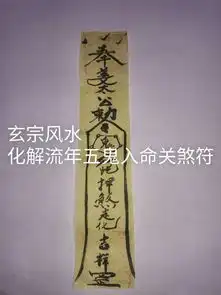 奉姜太公勅令
押煞走化吉祥罡
玄宗风水
化解流年五鬼入命关煞符